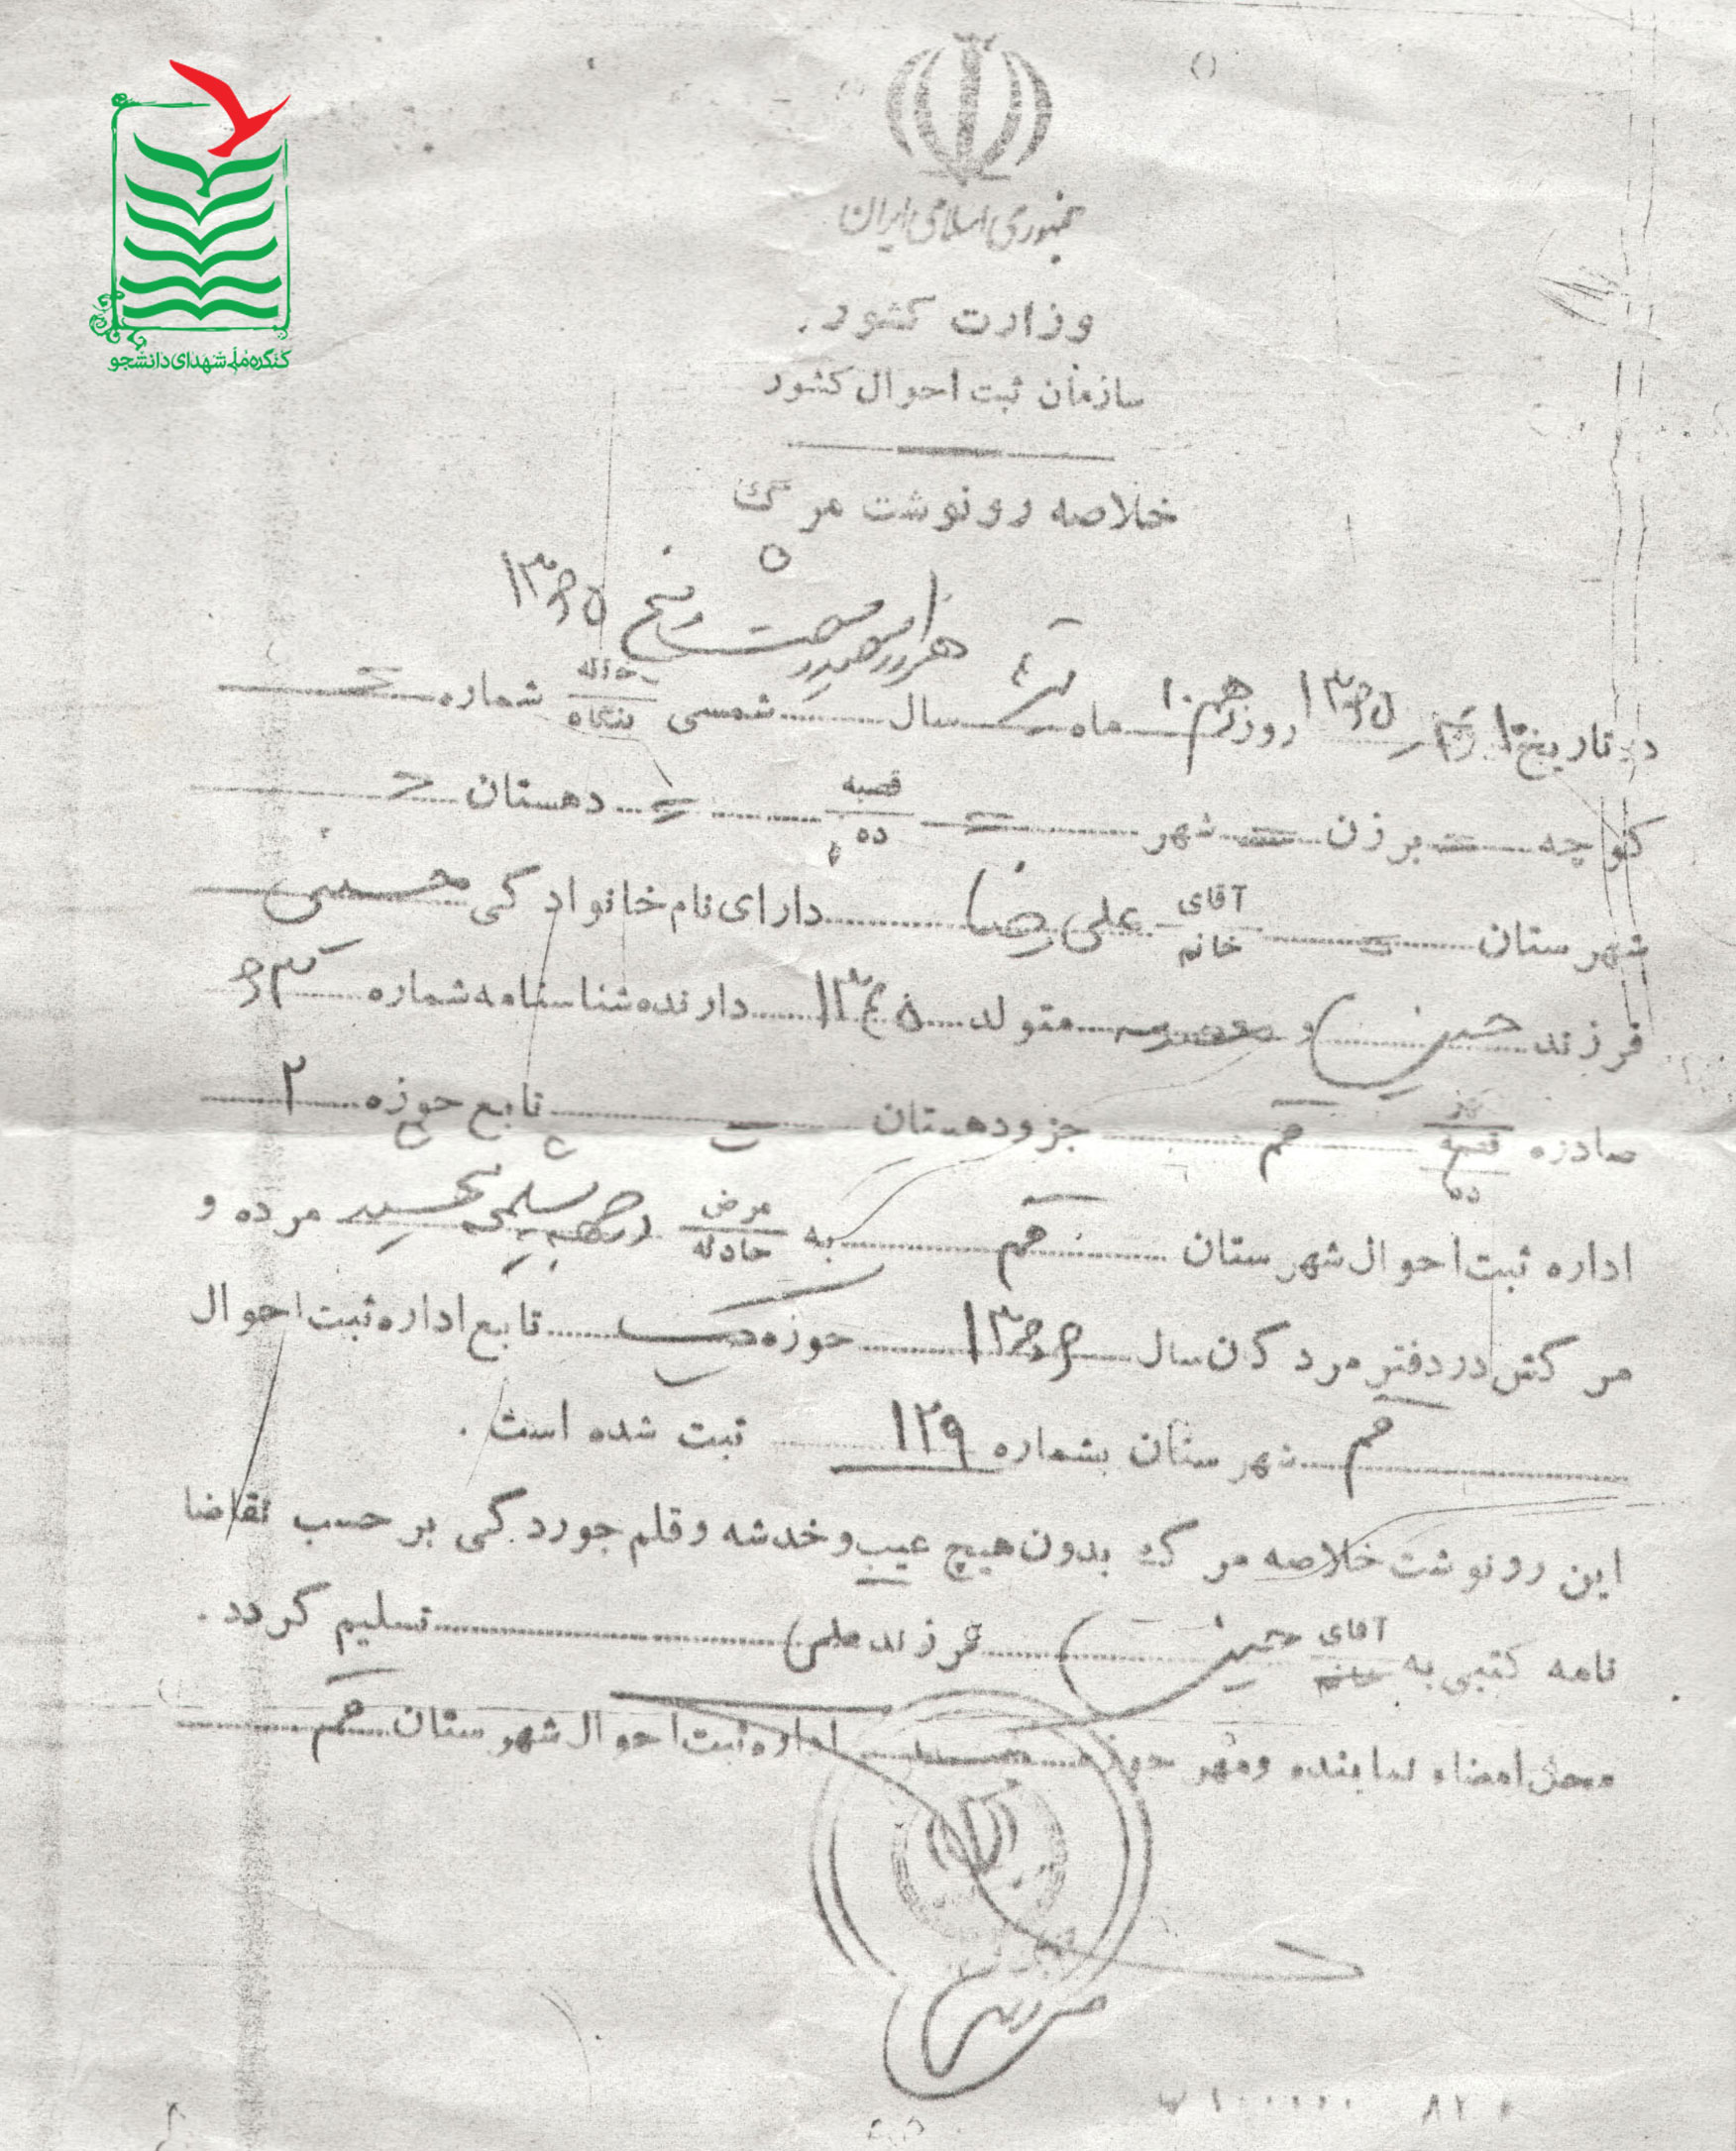 کنگره ملی شهدای دانشجو
جمهوری اسلامی ایران
وزارت کشور
سازمان ثبت احوال کشور
خلاصه رونوشت مرگ
هزار و سیصد و شصت و پنج ۱۳۶۵
در تاریخ ۱۳۶۵ روز دهم ۱۰ ماه تیر ۴ سال شمسی بنگاه شماره =
کوچه = برزن = شهر = قصبه ده = دهستان =
شهرستان = آقای خانم علی رضا دارای نام خانوادگی محسنی
فرزند حسین و معصومه متولد ۱۳۴۵ دارنده شناسنامه شماره ۶۳
صادره قصبه ده قم جزو دهستان تابع حوزه ۲
اداره ثبت احوال شهرستان قم به مرض حادثه مرده و
مرگش در دفتر مردگان سال ۱۳۶۶ حوزه یک تابع اداره ثبت احوال
قم شهرستان بشماره ۱۲۹ ثبت شده است .
این رونوشت خلاصه مرگ بدون هیچ عیب و خدشه و قلم خوردگی بر حسب تقاضا
نامه کتبی به آقای خانم حسین فرزند علی تسلیم گردد .
محل امضاء نماینده و مهر حوزه اداره ثبت احوال شهرستان قم